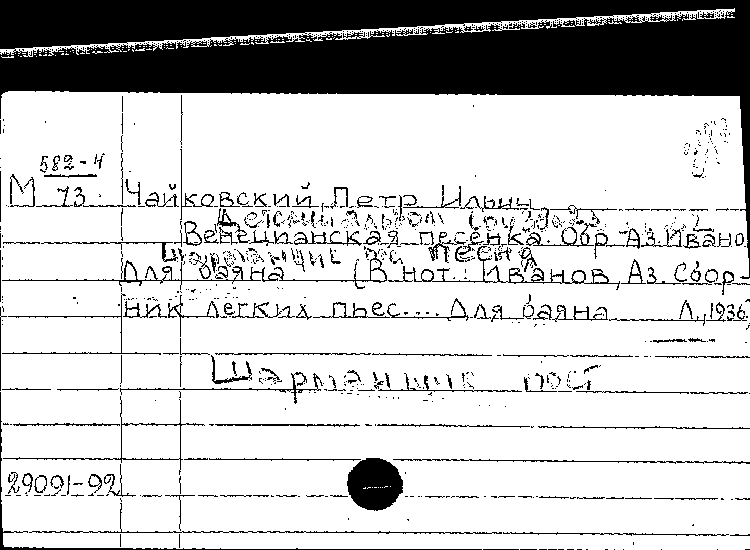 582-4
М 73. Чайковский, Петр Ильич
Детский альбом соч 39 №
Венецианская песенка. Обр. Аз. Ивано
Шарманщик песня
Для баяна (В нот.: Иванов, Аз. Сбор-
ник легких пьес.... Для баяна Л., 1936,
Шарманщик поет
29091-92